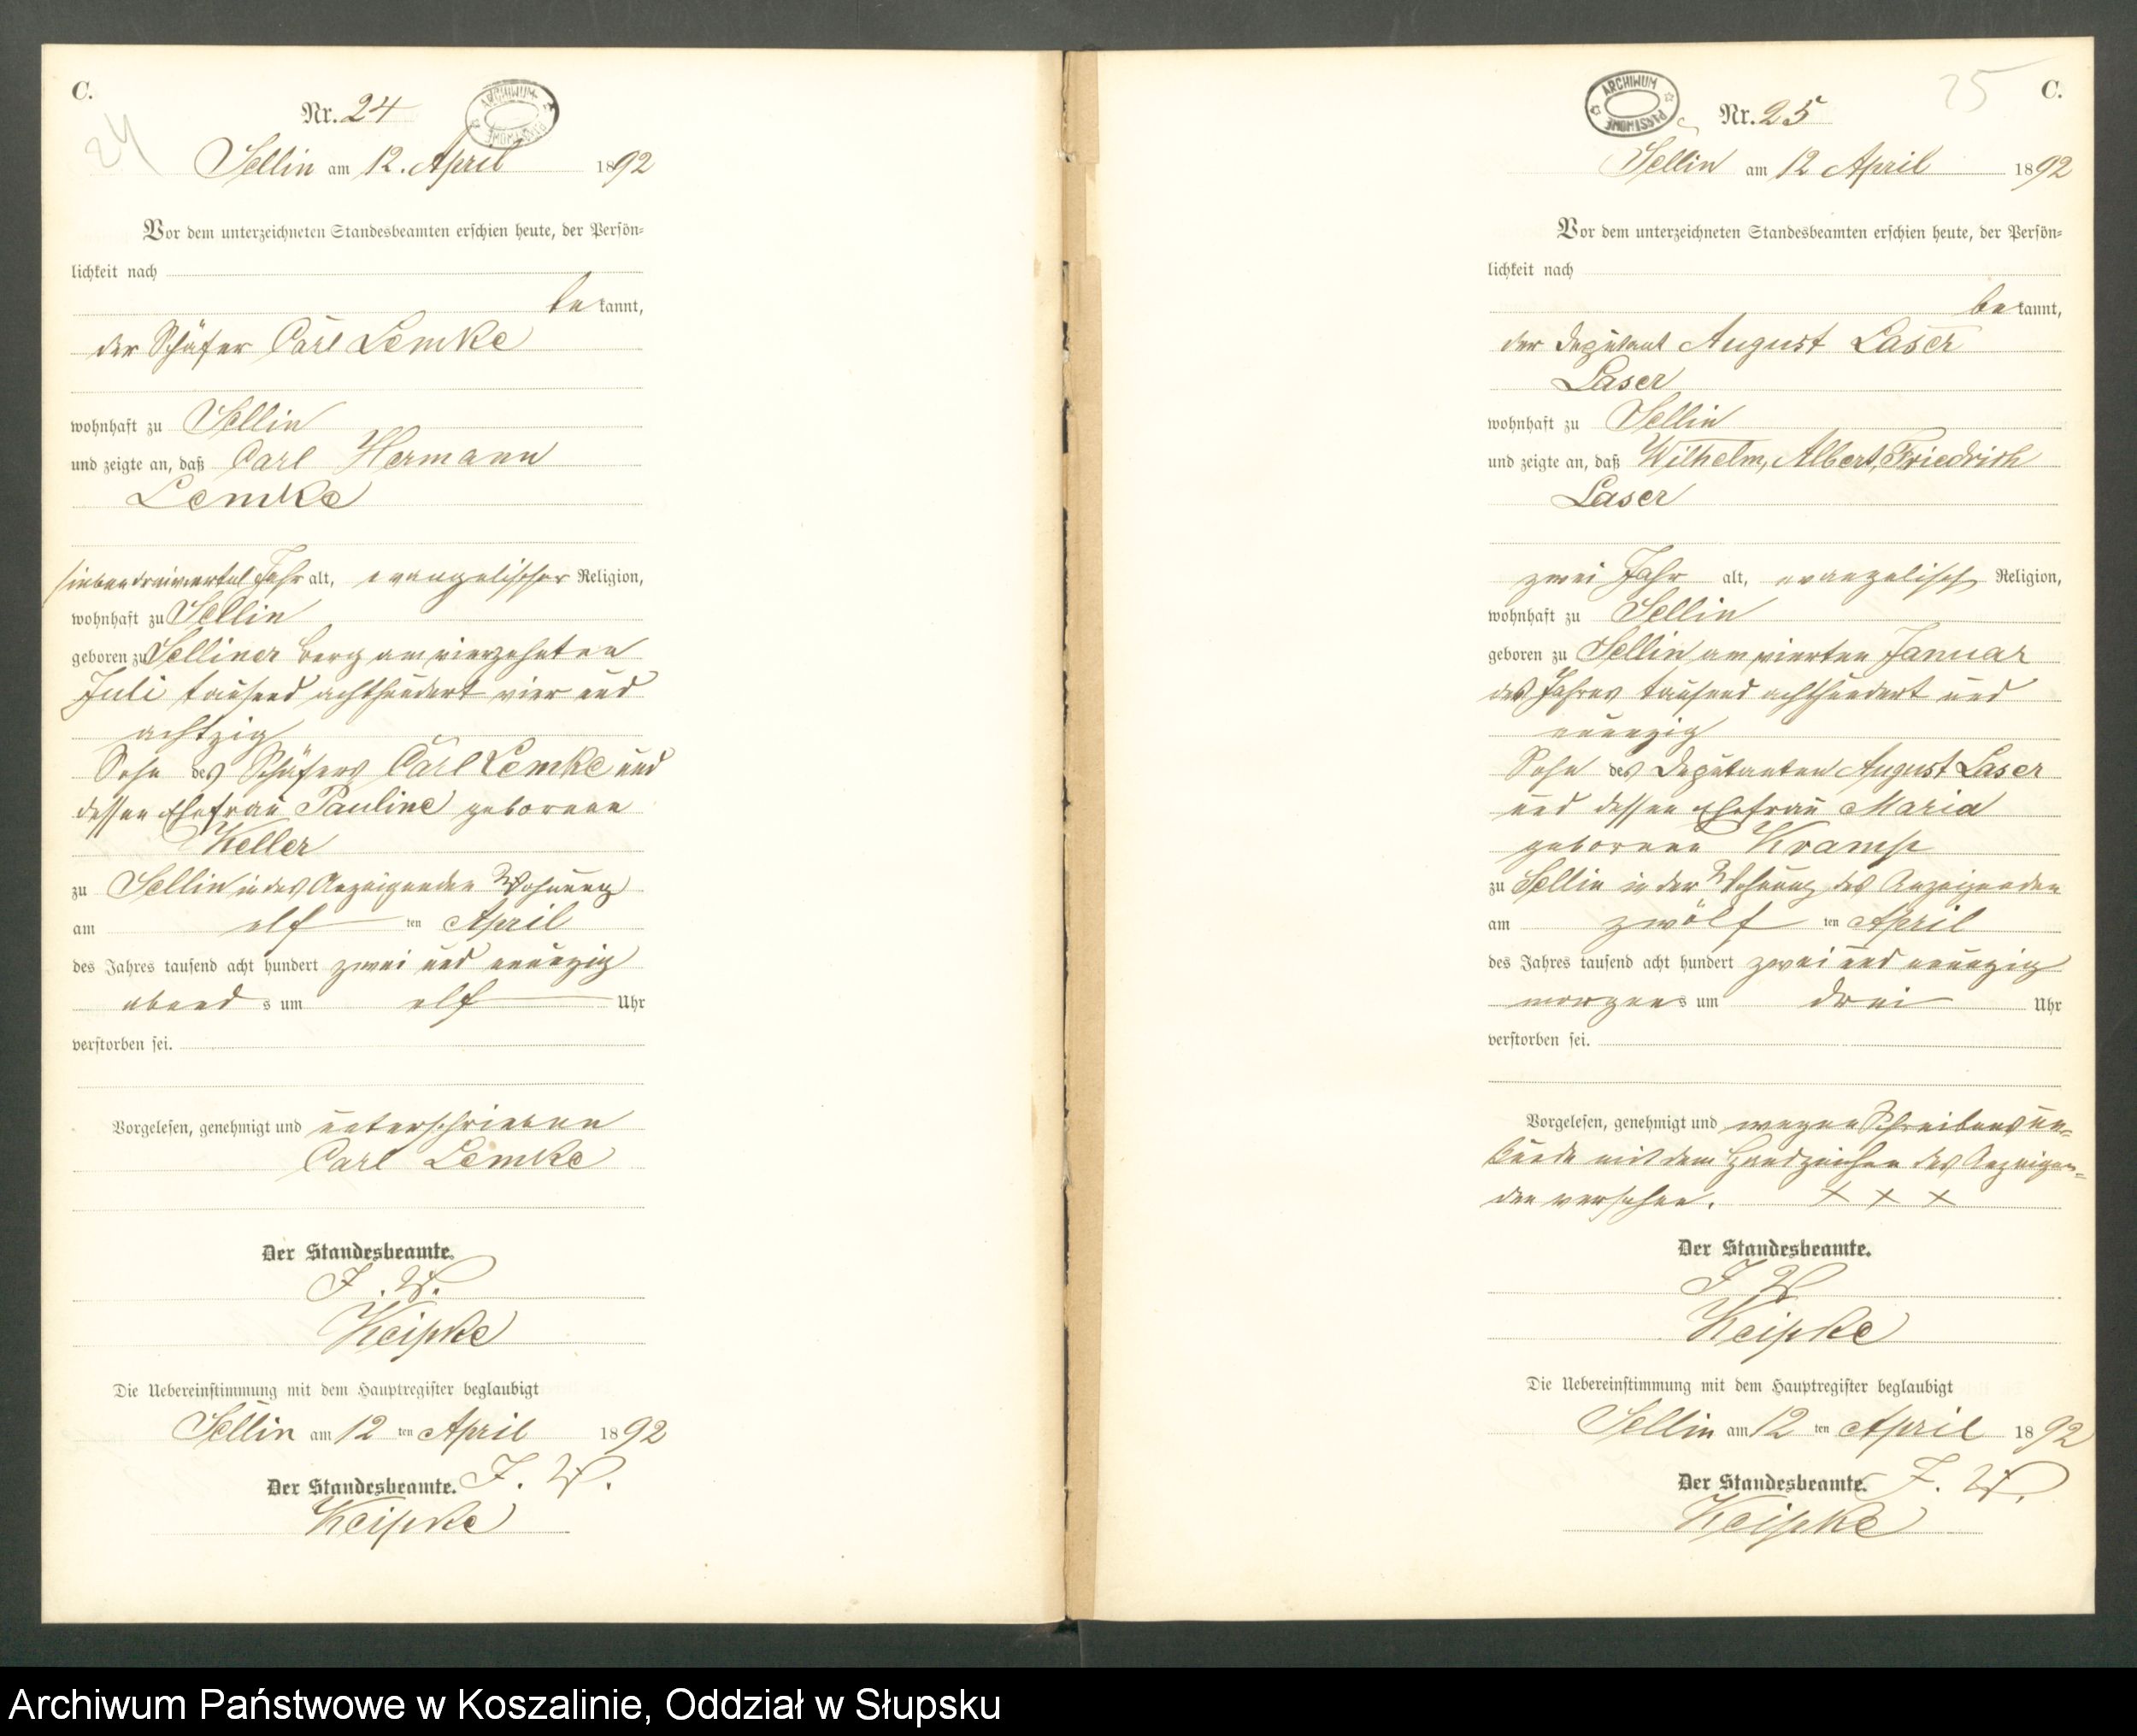 C.
24
Nr. 24
ARCHIWUM PAŃSTWOWE
Sellin am 12. April 1892
Vor dem unterzeichneten Standesbeamten erschien heute, der Persön-
lichkeit nach
be kannt,
der Schäfer Carl Lemke
wohnhaft zu Sellin
und zeigte an, daß Carl Hermann
Lemke
siebendreiviertel Jahr alt, evangelischer Religion,
wohnhaft zu Sellin
geboren zu Selliner Berg am vierzehnten
Juli tausend achthundert vier und
achtzig
Sohn des Schäfers Carl Lemke und
dessen Ehefrau Pauline geborenen
Keller
zu Sellin in des Anzeigenden Wohnung
am elf ten April
des Jahres tausend acht hundert zwei und neunzig
abend s um elf Uhr
verstorben sei.
Vorgelesen, genehmigt und unterschrieben
Carl Lemke
Der Standesbeamte.
J. V.
Keipke
Die Uebereinstimmung mit dem Hauptregister beglaubigt
Sellin am 12 ten April 1892
Der Standesbeamte. J. V.
Keipke
25
C.
ARCHIWUM PAŃSTWOWE
Nr. 25
Sellin am 12 April 1892
Vor dem unterzeichneten Standesbeamten erschien heute, der Persön-
lichkeit nach
be kannt,
der Deputant August Laser
Laser
wohnhaft zu Sellin
und zeigte an, daß Wilhelm, Albert, Friedrich
Laser
zwei Jahr alt, evangelisch Religion,
wohnhaft zu Sellin
geboren zu Sellin am vierten Januar
des Jahres tausend achthundert und
neunzig
Sohn des Deputanten August Laser
und dessen Ehefrau Maria
geborenen Kramp
zu Sellin in der Wohnung des Anzeigenden
am zwölf ten April
des Jahres tausend acht hundert zwei und neunzig
morgen s um drei Uhr
verstorben sei.
Vorgelesen, genehmigt und wegen Schreibensun-
kunde mit dem Handzeichen des Anzeigen-
den versehen. X X X
Der Standesbeamte.
J V
Keipke
Die Uebereinstimmung mit dem Hauptregister beglaubigt
Sellin am 12 ten April 1892
Der Standesbeamte. J. V.
Keipke
Archiwum Państwowe w Koszalinie, Oddział w Słupsku